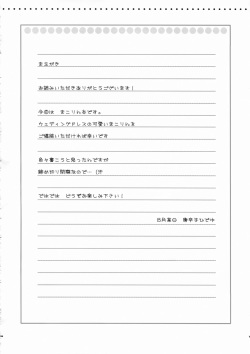 まえがき
お読みいただきありがとうございます！
今回は まこりんるです。
ウェディングドレスの可愛いまこりんるを
ご堪能いただければ幸いです
色々書こうと思ったんですが
締め切り間際なので…(汗
ではでは どうぞお楽しみ下さい！